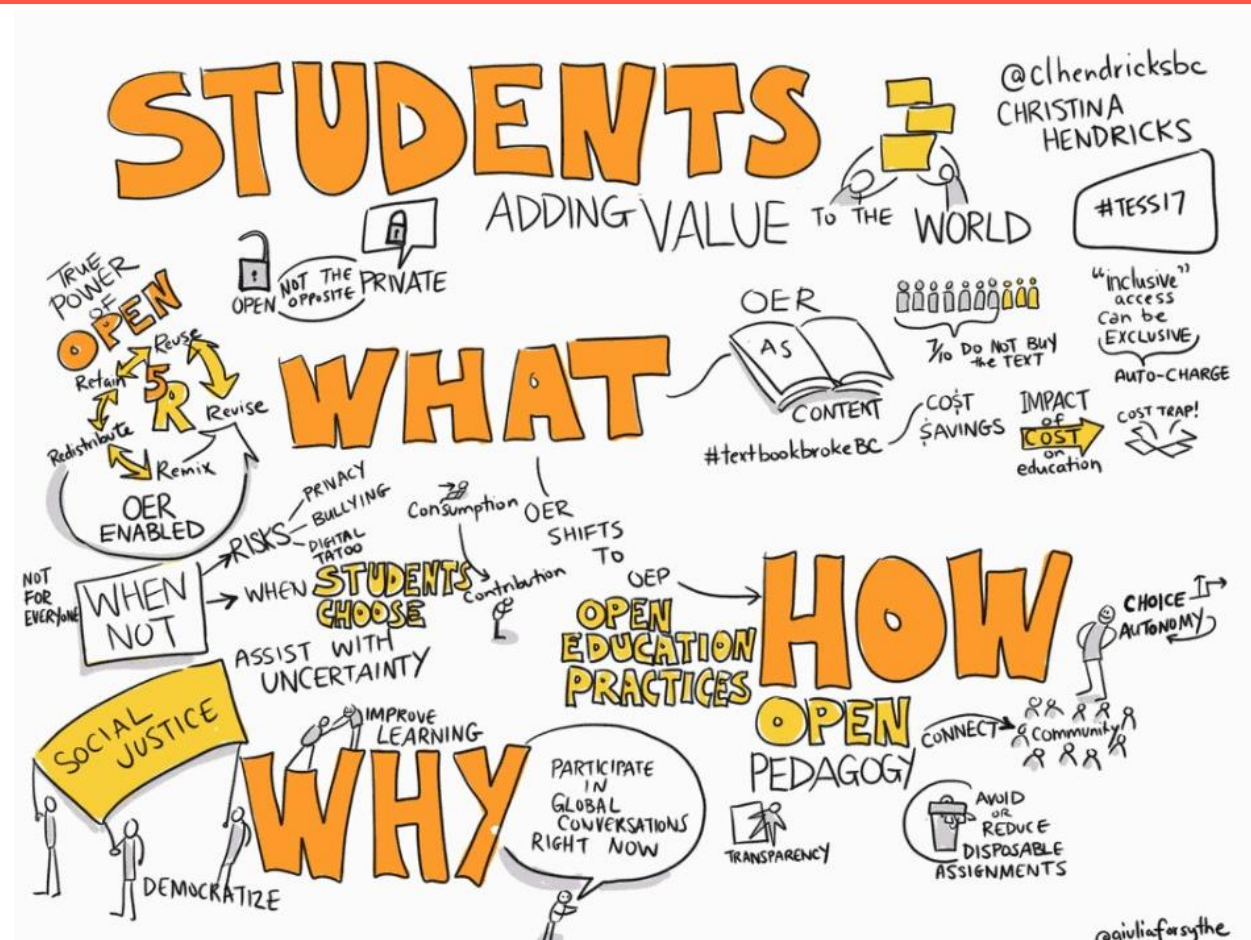 STUDENTS
ADDING VALUE TO THE WORLD
@clhendricksbc
CHRISTINA
HENDRICKS
#TESS17
OPEN
NOT THE
OPPOSITE
PRIVATE
TRUE
POWER
OF
OPEN
5R
Reuse
Revise
Remix
Redistribute
Retain
OER
ENABLED
WHAT
OER
AS
CONTENT
7/10 DO NOT BUY
the TEXT
"inclusive"
access
can be
EXCLUSIVE
AUTO-CHARGE
#textbookbrokeBC
CO$T
$AVINGS
IMPACT
of
COST
on
education
COST TRAP!
NOT
FOR
EVERYONE
WHEN
NOT
RISKS
PRIVACY
BULLYING
DIGITAL
TATOO
WHEN STUDENTS
CHOOSE
ASSIST WITH
UNCERTAINTY
Consumption
Contribution
OER
SHIFTS
TO
OEP
OPEN
EDUCATION
PRACTICES
HOW
CHOICE
AUTONOMY
OPEN
PEDAGOGY
CONNECT
Community
TRANSPARENCY
AVOID
OR
REDUCE
DISPOSABLE
ASSIGNMENTS
SOCIAL
JUSTICE
DEMOCRATIZE
WHY
IMPROVE
LEARNING
PARTICIPATE
IN
GLOBAL
CONVERSATIONS
RIGHT NOW
@giuliaforsythe